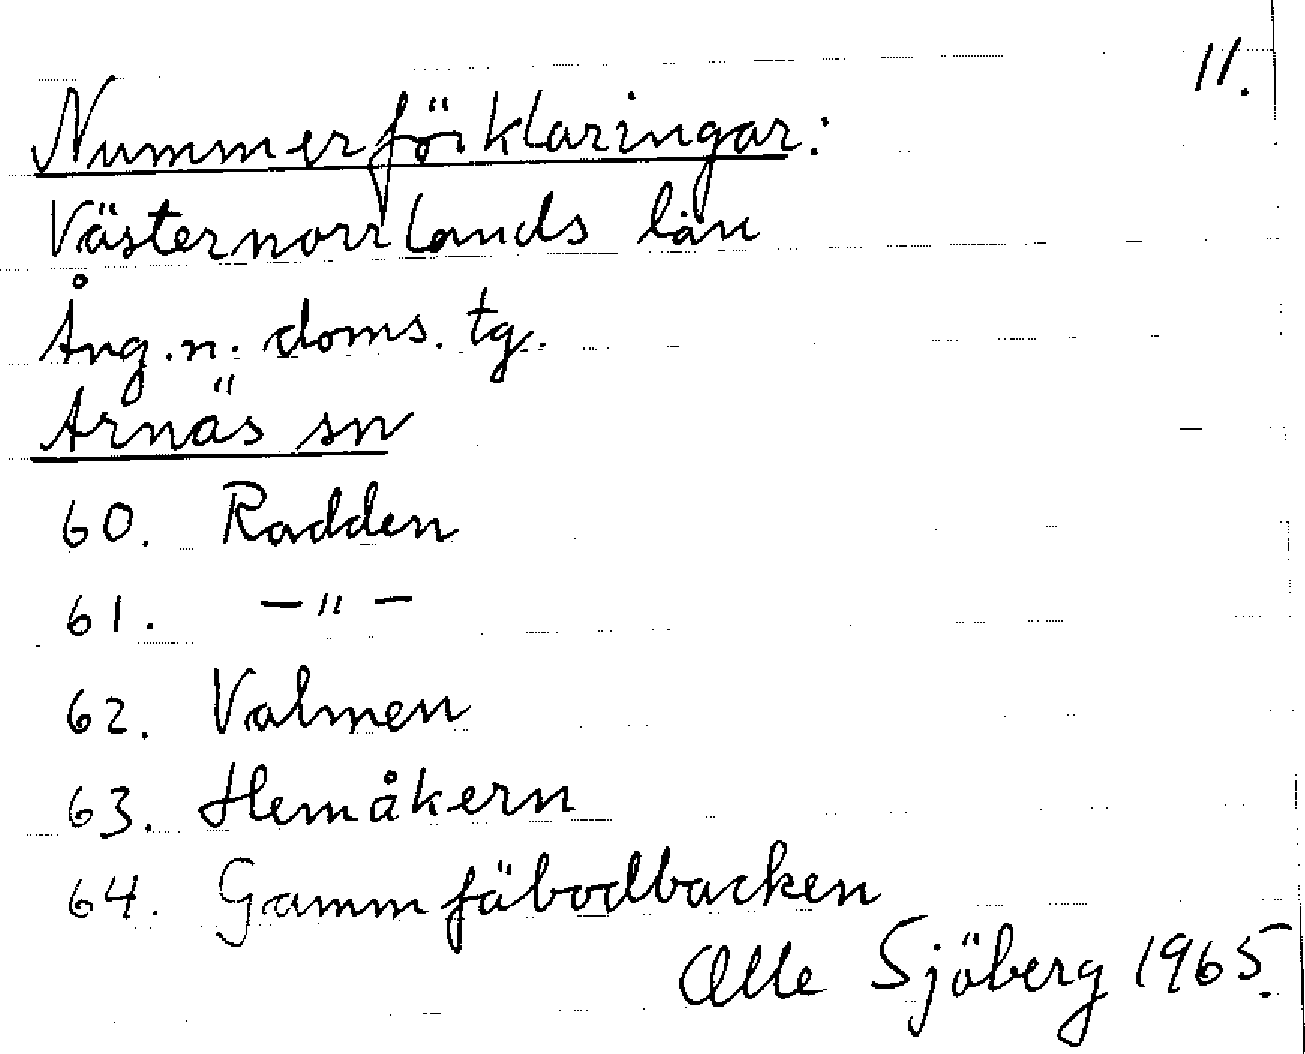 11.
Nummerförklaringar:
Västernorrlands län
Ång. n. doms. tg.
Arnäs sn
60. Radden
61. —"—
62. Valmen
63. Hemåkern
64. Gammfäbodbacken
Olle Sjöberg 1965.